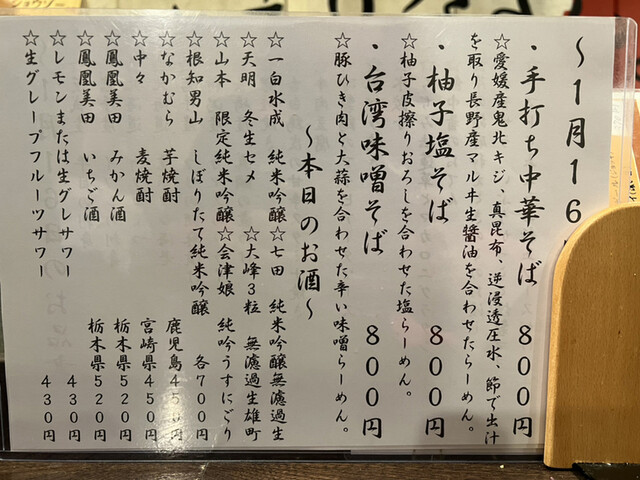 ～1月16
・手打ち中華そば　８００円
☆愛媛産鬼北キジ、真昆布、逆浸透圧水、節で出汁
を取り長野産マルヰ生醤油を合わせたらーめん。
・柚子塩そば　８００円
☆柚子皮擦りおろしを合わせた塩らーめん。
・台湾味噌そば　８００円
☆豚ひき肉と大蒜を合わせた辛い味噌らーめん。
～本日のお酒～
☆一白水成　純米吟醸☆七田　純米吟醸無濾過生
☆天明　冬生セメ　☆大峰３粒　無濾過生雄町
☆山本　限定純米吟醸☆会津娘　純吟うすにごり
☆根知男山　しぼりたて純米吟醸　各７００円
☆なかむら　芋焼酎　鹿児島４５０円
☆中々　麦焼酎　宮崎県４５０円
☆鳳凰美田　みかん酒　栃木県５２０円
☆鳳凰美田　いちご酒　栃木県５２０円
☆レモンまたは生グレサワー　４３０円
☆生グレープフルーツサワー　４３０円